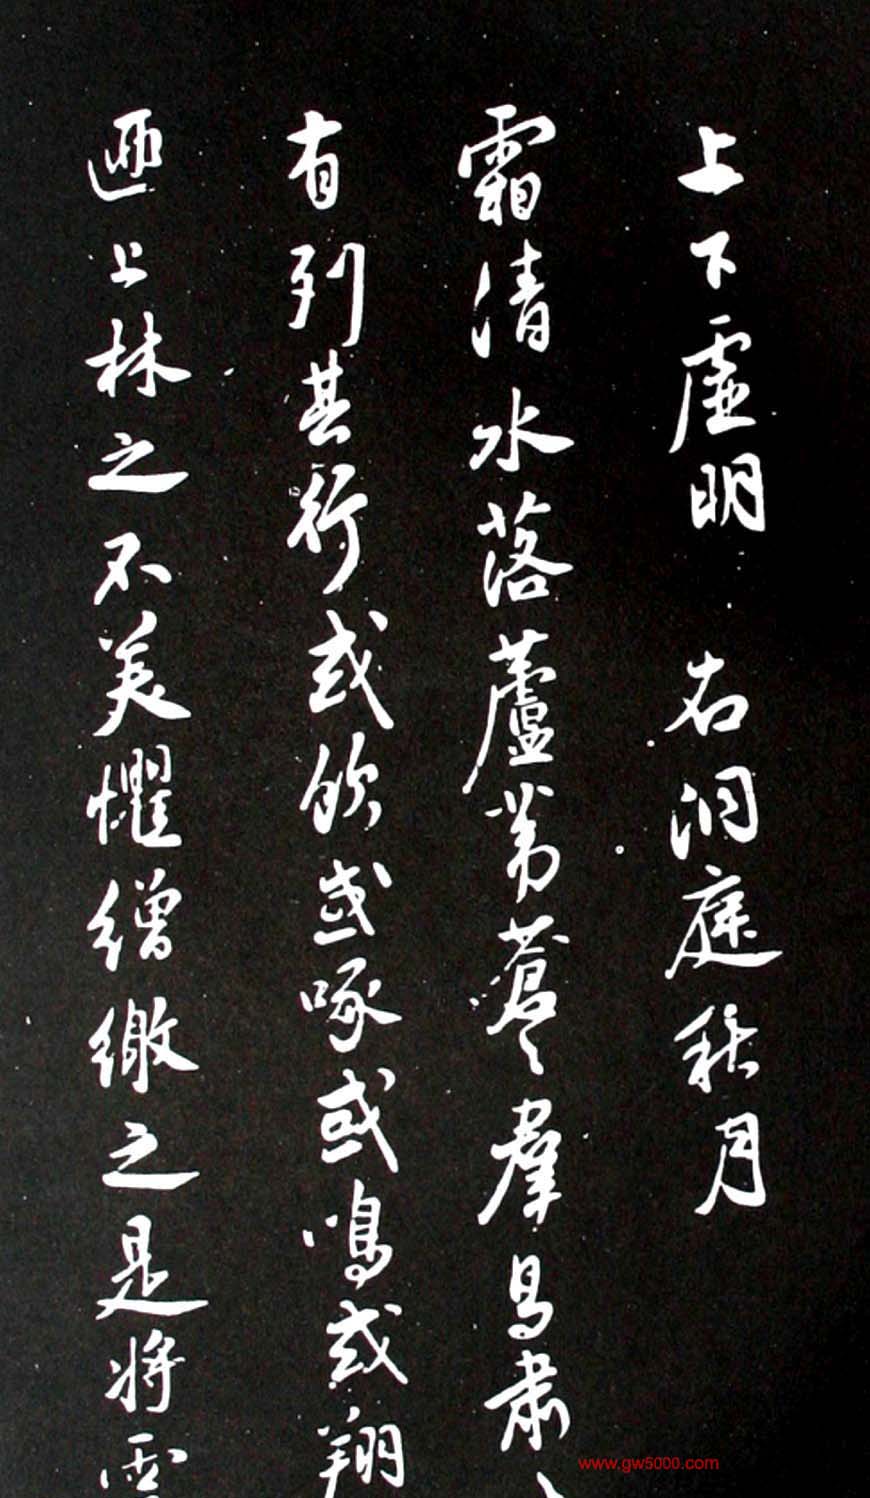 上下虛明 右洞庭秋月
霜清水落蘆葦蒼々羣鳥肅
有列其行或飲或啄或鳴或翔
匪上林之不美懼繒繳之是將雲
www.gw5000.com